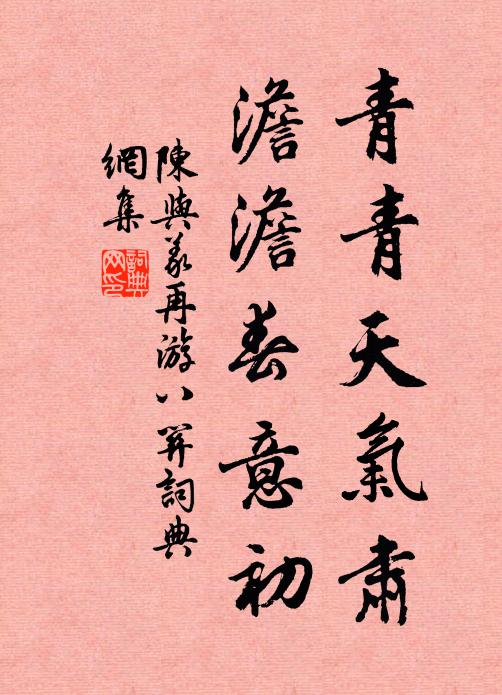 青青天氣肅
澹澹春意初
陳與義再游八關詞典
網集
詞典
网印